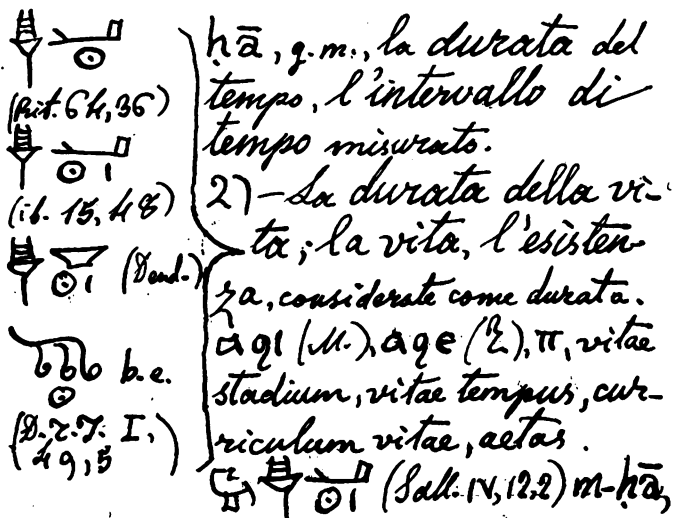 (Rit. 64, 36)
(ib. 15, 48)
(Dend.)
b.e.
(D.z.T. I,
49, 5)
ḥā, g.m., la durata del
tempo, l'intervallo di
tempo misurato.
2)-La durata della vi-
ta; la vita, l'esisten-
za, considerate come durata.
(M.), π, vitae
stadium, vitae tempus, cur-
riculum vitae, aetas.
(Sall. IV, 12,2) m-ḥā,